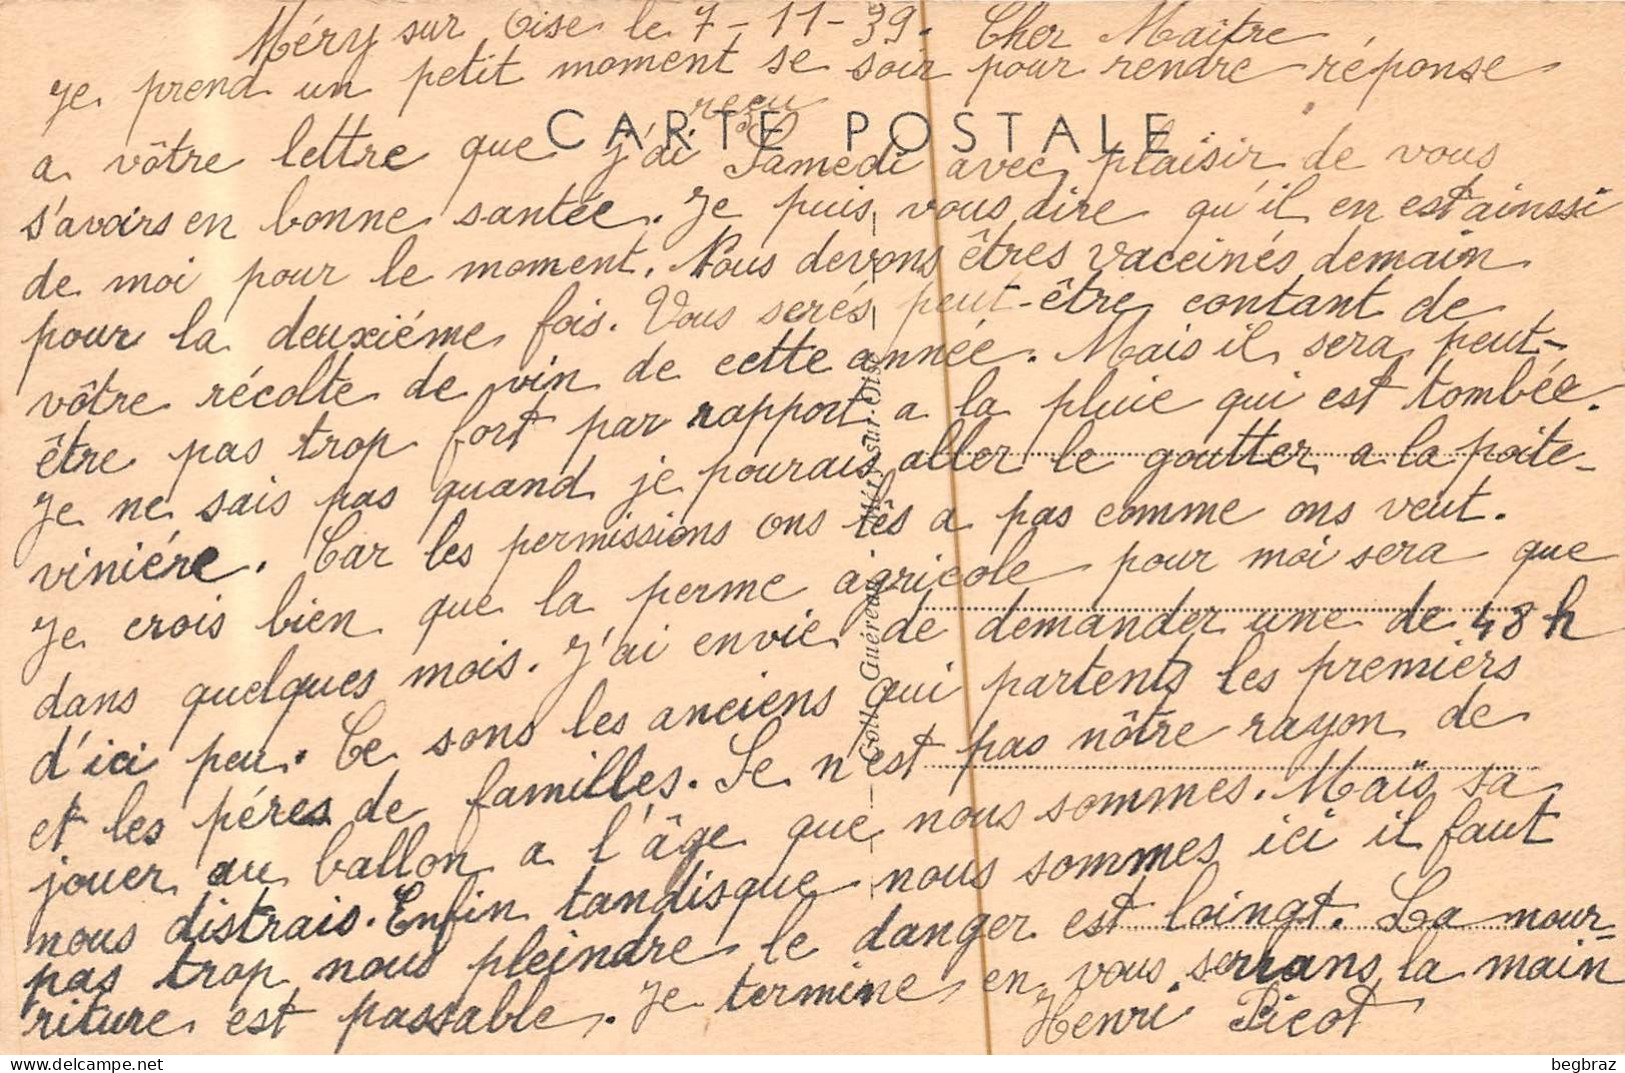 Méry sur Oise le 7-11-39. Cher Maitre
Je prend un petit moment se soir pour rendre réponse
reçu
CARTE POSTALE
a vôtre lettre que j'ai Samedi avec plaisir de vous
s'avoirs en bonne santée. Je puis vous dire qu'il en est ainssi
de moi pour le moment. Nous devons êtres vaccinés demain
pour la deuxiéme fois. Vous serés peut-être contant de
vôtre récolte de vin de cette année. Mais il sera peut-
être pas trop fort par rapport a la pluie qui est tombée.
Je ne sais pas quand je pourais aller le goutter a la poite-
viniére. Car les permissions ons lés a pas comme ons veut.
Je crois bien que la perme agricole pour moi sera que
dans quelques mois. J'ai envie de demander une de 48 h
d'ici peu. Ce sons les anciens qui partents les premiers
et les péres de familles. Se n'est pas nôtre rayon de
jouer au ballon a l'âge que nous sommes. Maïs sa
nous distrais. Enfin tandisque nous sommes ici il faut
pas trop nous pleindre le danger est loingt. La nour-
riture est passable. Je termine en vous serrans la main
Henri Picot
Coll. Guéreau — Méry-sur-Oise
begbraz